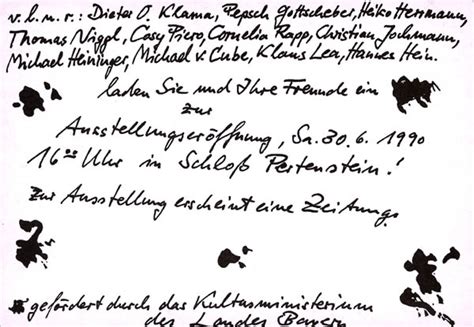 v.l.n.r.: Dieter O. Klama, Pepsch Gottscheber, Heiko Herrmann,
Thomas Niggl, Casy Piero, Cornelia Rapp, Christian Jochmann,
Michael Heininger, Michael v. Cube, Klaus Lea, Hannes Hein.
laden Sie und Ihre Freunde ein
zur
Ausstellungseröffnung, Sa. 30.6. 1990
16 Uhr in Schloß Pertenstein!
Zur Ausstellung erscheint eine Zeitung.
gefördert durch das Kultusministerium
des Landes Bayern